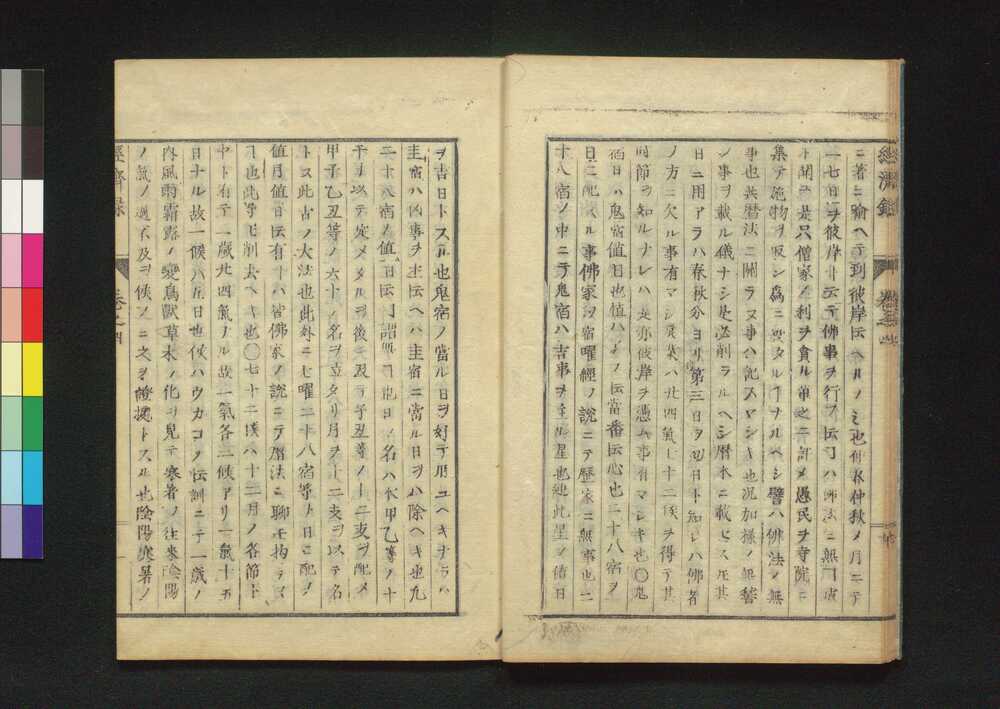 ニ著ニ喩ヘテ到彼岸伝ヘルノミ也仲春仲秋ノ月ニテ
一七日ヲ彼岸ト云テ佛事ヲ行フ伝フハ佛法ニ無
ト聞テ是只僧家ノ利ヲ貪ル輩之ニ託メ愚民ヲ寺院ニ
集テ施物ヲ取シ為ニ設タルナルベシ譬ハ佛法ノ無
事也共暦法ニ關ラヌ事ハ記スマジキ也况加様ノ無稽
ノ事ヲ載ル儀ナシ是必削ラルヘシ暦本ニ載ヒス圧其
日ニ用アラハ春秋分ヨリ第三日ヲ起日ト知レハ佛者
ノ方ニ欠ル事有マジ其葉ハ廿四氣七十二候ヲ得テ其
時節ヲ知ルナレハ是亦彼岸ヲ憑ム事有マジキ也〇鬼
宿日ハ鬼宿値日也慎ハノ伝當番伝心也二十八宿ヲ
日ニ配スル事佛家ヲ宿曜經ノ説ニテ歴家ニ無事也二
十八宿ノ中ニテ鬼宿ハ吉事ヲ主ル星也逑此星ノ値日
經濟録 巻之四
ヲ吉日トスル也鬼宿ノ當ル日ヲ好テ用ユヘキナラハ
圭宿ハ凶事ヲ主伝ヘハ圭宿ニ當ル日ヲハ除ヘキ也凡
二十八宿ノ値日伝フ謂無フ也日ノ名ハ本甲乙等ノ十
干ヲ以テ定メタルヲ後ニ及テ子丑等ノ十二支ヲ配メ
甲子乙丑等ノ六十ノ名ヲ立タリ月ヲ十二支ヲ以テ名
トス此古ノ大法也此外ニ七曜二十八宿等ト日ニ配ノ
値月値日伝有ハ皆佛家ノ説ニテ暦法ニ聊モ拘ラヌ
フ也此等モ削去ヘキ也〇七十二候ハ十二月ノ各節ト
中ト有テ一歳廿四氣ナル故ニ一氣各三候アリ一氣十五
日ナル故一候ハ五日也候ハウカコフ伝訓ニテ一歳ノ
内風雨霜露ノ變鳥獣草木ノ化ヲ見テ寒暑ノ往来陰陽
ノ氣ノ過不及ヲ候フニ之ヲ證據トスル也陰陽寒暑ノ
經濟録 巻之四